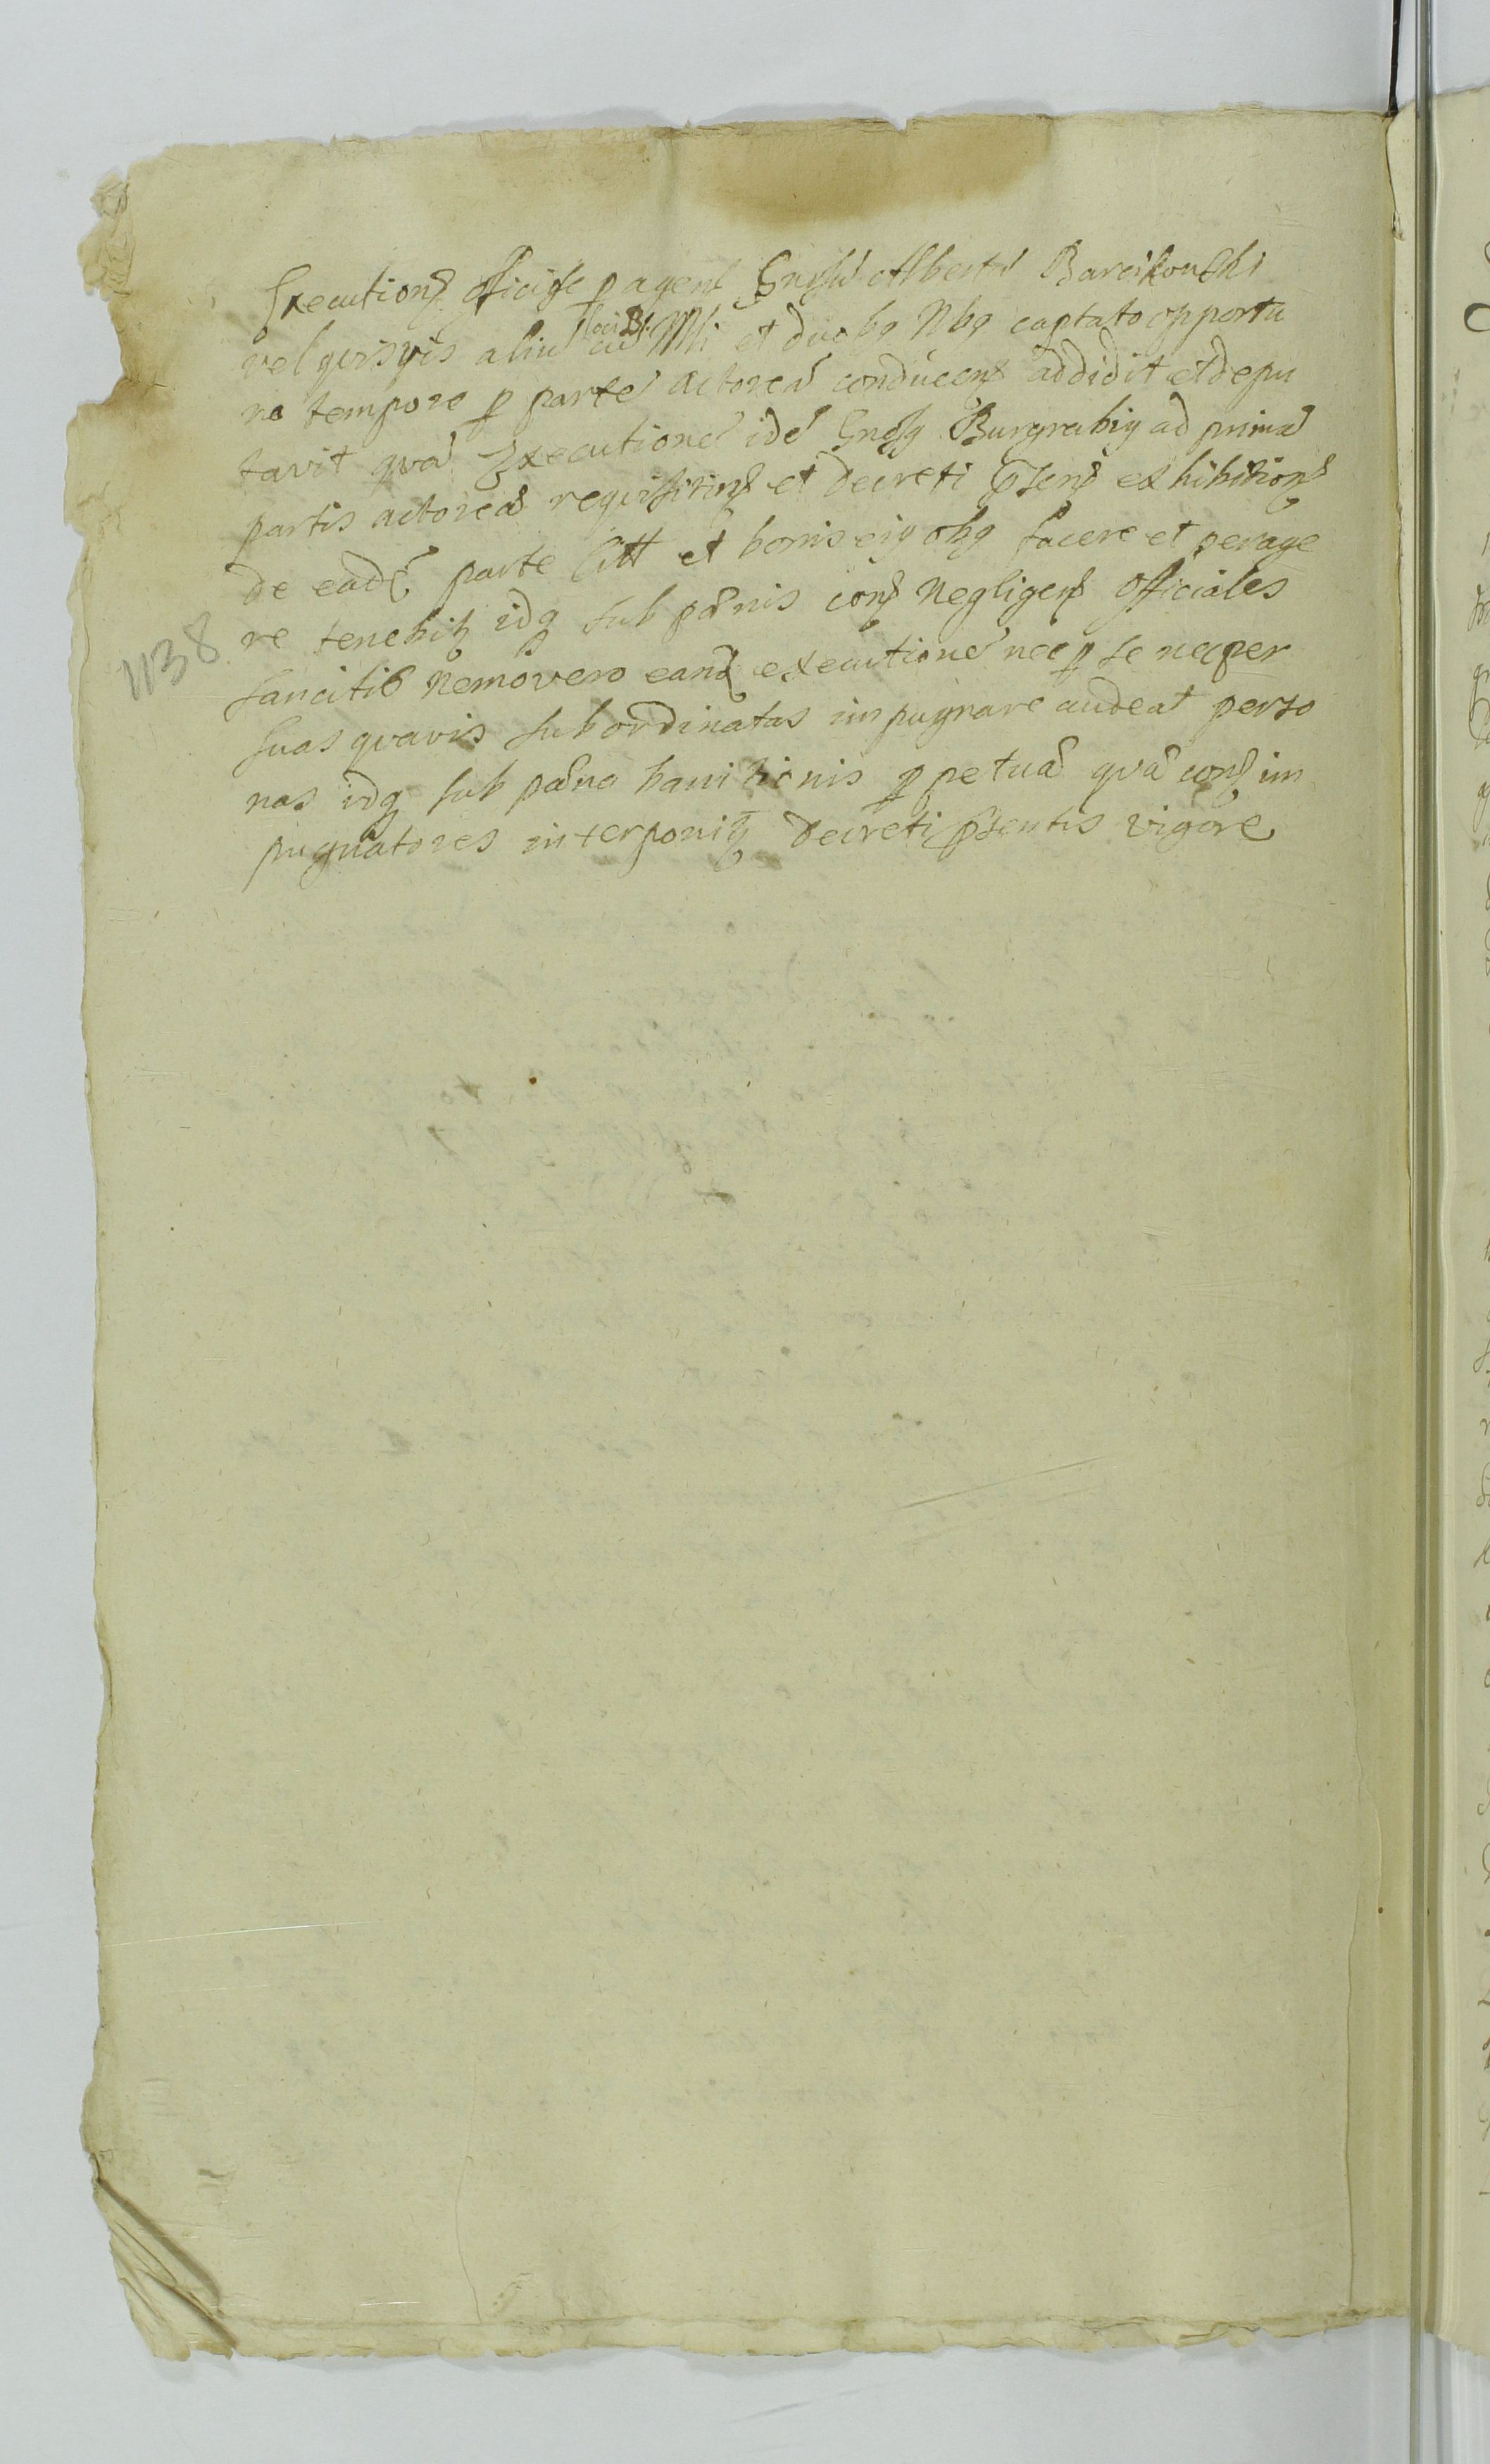 Execution officiose p agen Gnosu Albertu Barcikouski
vel quisvis aliu cu Mli et duobq Nbq captato opportu
no tempore p parte actorea conducen addidit et depu
tavit qva Executione ide Gnosq Burgrabiq ad prima
partis actorea reqvisition et decreti psen exhibition
de ead parte Citt et bonis eiq obq facere et perage
re tenebit idq sub poenis con negligen officiales
sancitis nemo vero eand executione nec p se nec per
suas qvavis subordinatas impugnare audeat perso
nas idq sub poena banitionis ppetua qva con im
pugnatores interponit decreti psentis vigore
1138